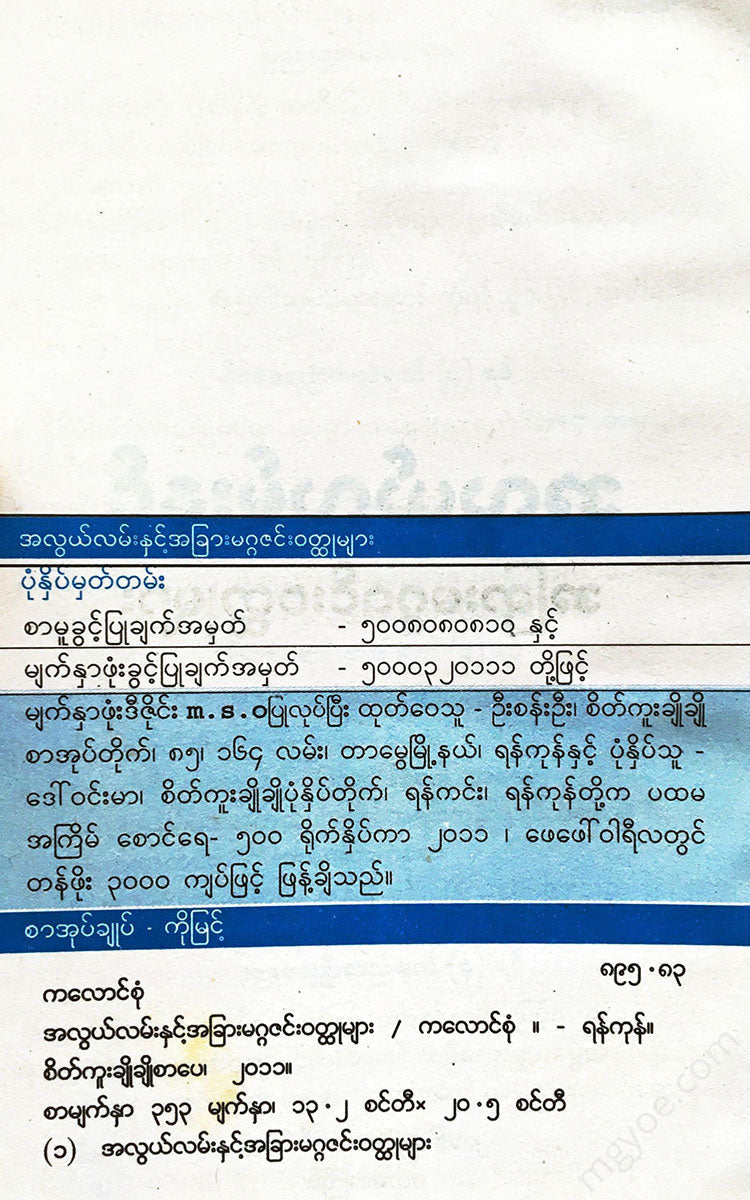 အလွယ်လမ်းနှင့်အခြားမဂ္ဂဇင်းဝတ္ထုများ
ပုံနှိပ်မှတ်တမ်း
စာမူခွင့်ပြုချက်အမှတ် - ၅၀၀၈၀၈၀၈၁၃ နှင့်
မျက်နှာဖုံးခွင့်ပြုချက်အမှတ် - ၅၀၀၀၃၂၀၁၁၁ တို့ဖြင့်
မျက်နှာဖုံးဒီဇိုင်း m.s.oပြုလုပ်ပြီး ထုတ်ဝေသူ - ဦးစန်းဦး၊ စိတ်ကူးချိုချို
စာအုပ်တိုက်၊ ၈၅၊ ၁၆၄ လမ်း၊ တာမွေမြို့နယ်၊ ရန်ကုန်နှင့် ပုံနှိပ်သူ -
ဒေါ်ဝင်းမာ၊ စိတ်ကူးချိုချိုပုံနှိပ်တိုက်၊ ရန်ကင်း၊ ရန်ကုန်တို့က ပထမ
အကြိမ် စောင်ရေ- ၅၀၀ ရိုက်နှိပ်ကာ ၂၀၁၁ ၊ ဖေဖော်ဝါရီလတွင်
တန်ဖိုး ၃၀၀၀ ကျပ်ဖြင့် ဖြန့်ချိသည်။
စာအုပ်ချုပ် - ကိုမြင့်
၈၉၅.၈၃
ကလောင်စုံ
အလွယ်လမ်းနှင့်အခြားမဂ္ဂဇင်းဝတ္ထုများ / ကလောင်စုံ ။ - ရန်ကုန်။
စိတ်ကူးချိုချိုစာပေ၊ ၂၀၁၁။
စာမျက်နှာ ၃၅၃ မျက်နှာ၊ ၁၃.၂ စင်တီ× ၂၀.၅ စင်တီ
(၁) အလွယ်လမ်းနှင့်အခြားမဂ္ဂဇင်းဝတ္ထုများ
mgyoe.com